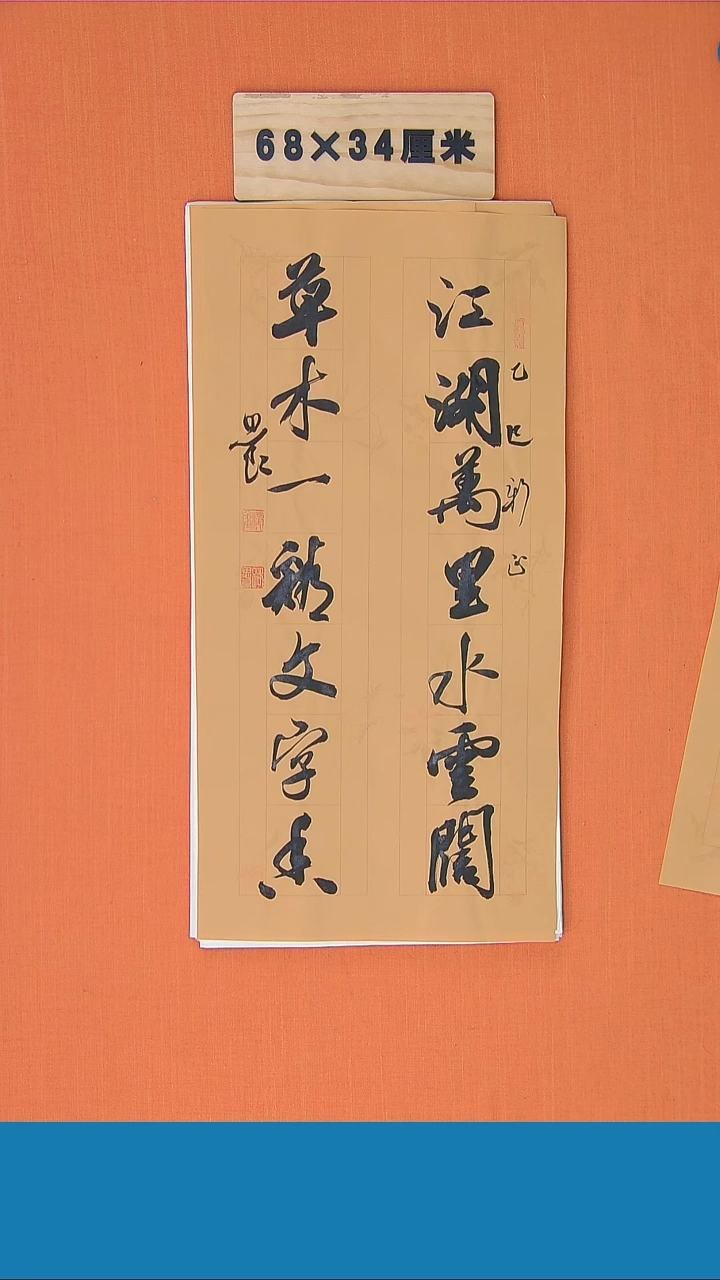 68×34厘米
江湖萬里水雲闊
乙巳
草木一谿文字香